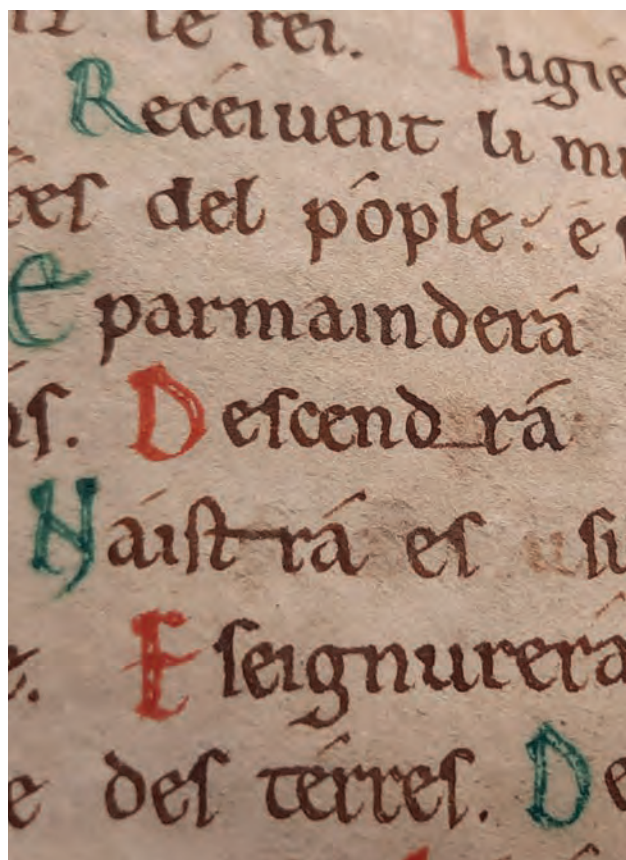 le rei. Iugie
Receiuent li
del póple: é
E parmainderá
Descendrá
Naistrá es
E seignurerá
e des térres. De